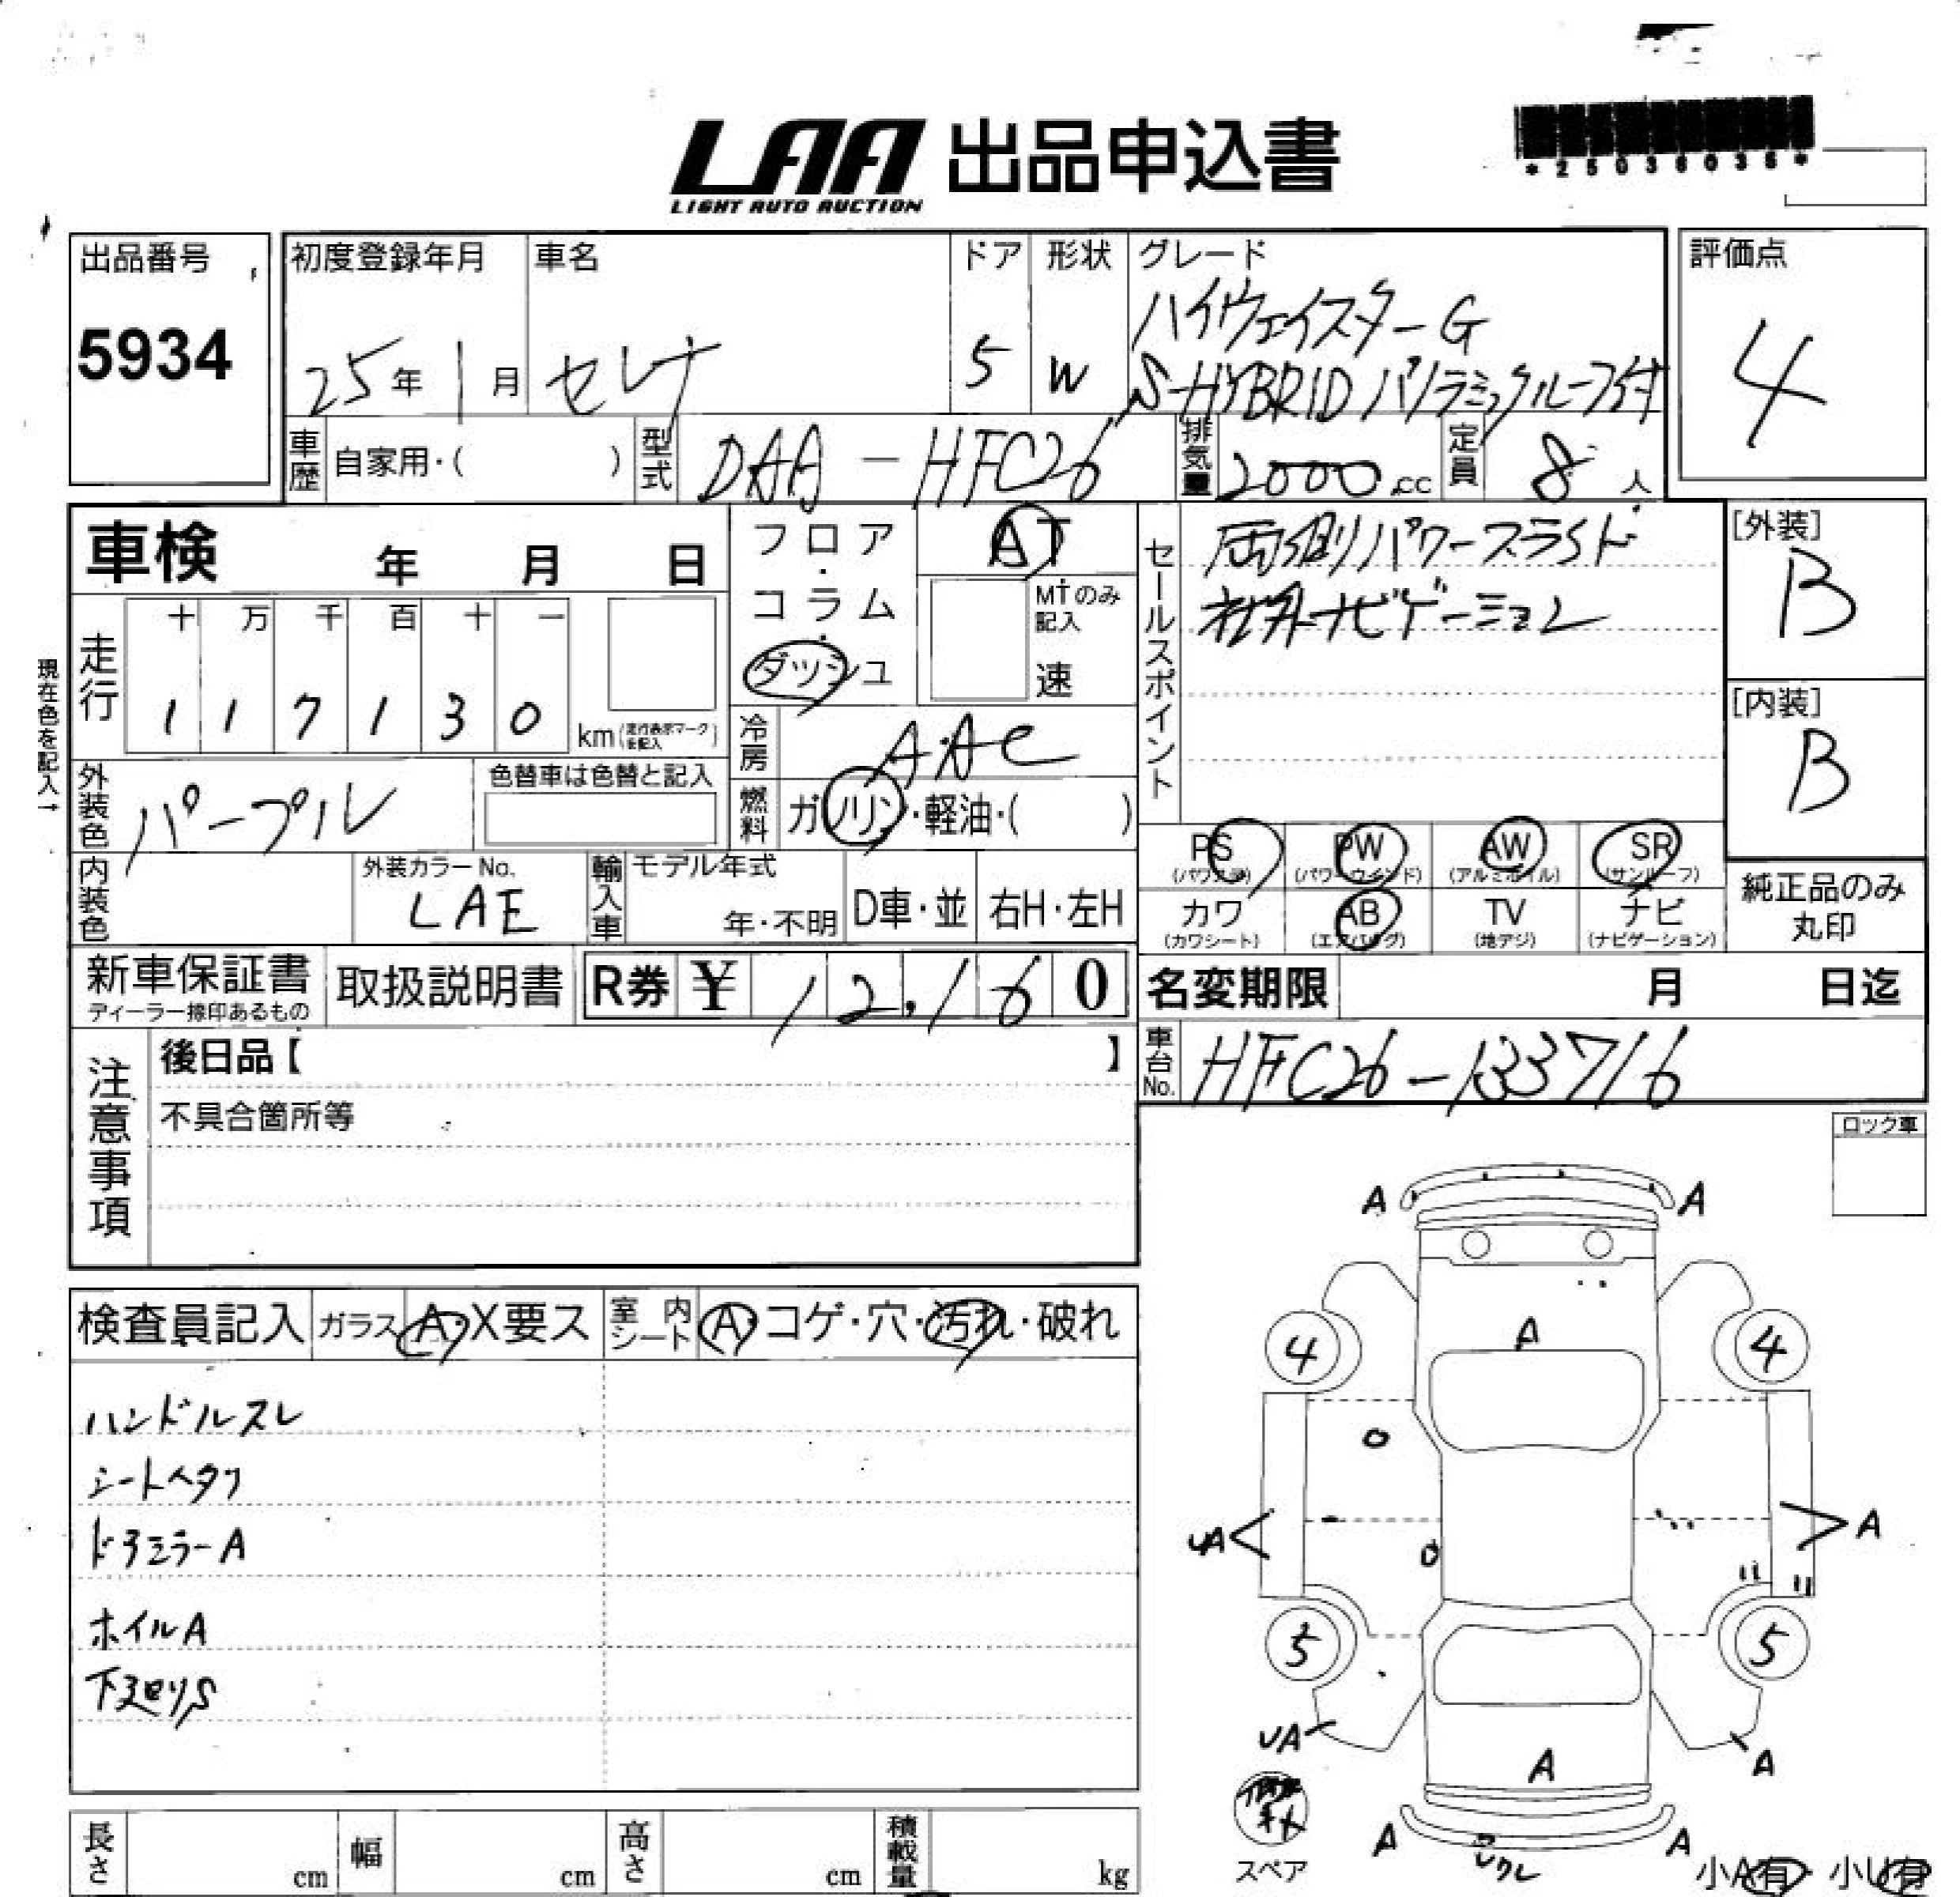 LAA 出品申込書
LIGHT AUTO AUCTION
*25038036*
出品番号
5934
初度登録年月
25年 1月
車名
セレナ
ドア
5
形状
W
グレード
ハイウェイスターG
S-HYBRID パノラミックルーフ付
評価点
4
車歴 自家用・( )
型式 DAA-HFC26
排気量 2000.cc
定員 8人
車検 年 月 日
フロア・コラム・ダッシュ
AT
MTのみ記入
速
セールスポイント
両側パワースライド
社外ナビゲーション
[外装]
B
[内装]
B
現在色を記入→
走行
十 万 千 百 十 一
1 1 7 1 3 0
km(走行表示マークを記入)
冷房 AAC
燃料 ガソリン・軽油・( )
外装色 パープル
色替車は色替と記入
内装色
外装カラーNo.
LAE
輸入車
モデル年式
年・不明
D車・並
右H・左H
PS (パワステ)
PW (パワーウインド)
AW (アルミホイル)
SR (サンルーフ)
カワ (カワシート)
AB (エアバッグ)
TV (地デジ)
ナビ (ナビゲーション)
純正品のみ
丸印
新車保証書
ディーラー捺印あるもの
取扱説明書
R券 ¥ 12,160
名変期限 月 日迄
車台No. HFC26-133716
注意事項
後日品【 】
不具合箇所等
ロック車
検査員記入
ガラス A・X要ス
室内シート A・コゲ・穴・汚れ・破れ
ハンドルスレ
シートヘタリ
ドアミラーA
ホイルA
下廻りS
A A
4 4
A
UA A
5 5
UA A
A
A A
スペア
小A有・小U有
長さ cm
幅 cm
高さ cm
積載量 kg